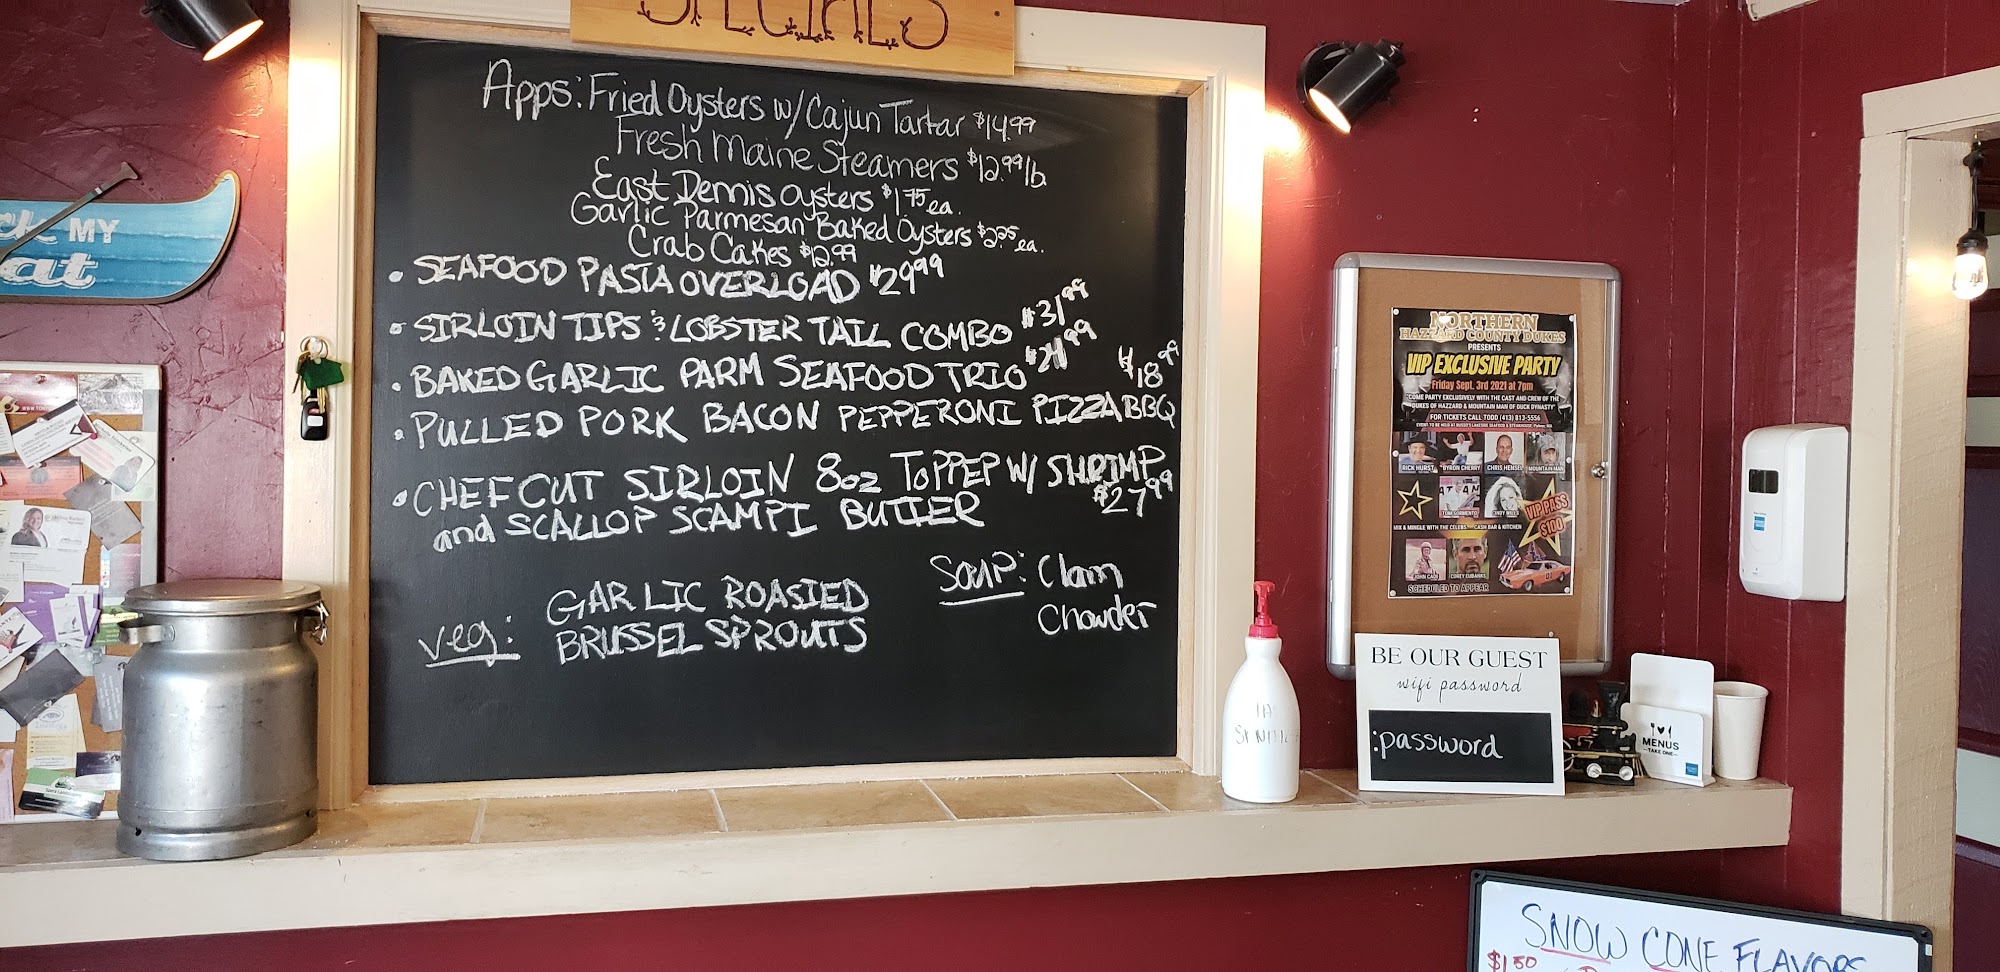 SPECIALS
Apps: Fried Oysters w/ Cajun Tartar $14.99
Fresh Maine Steamers $12.99 lb
East Dennis oysters $1.75 ea.
Garlic Parmesan Baked Oysters $2.25 ea.
Crab Cakes $12.99
• SEAFOOD PASTA OVERLOAD $29.99
• SIRLOIN TIPS & LOBSTER TAIL COMBO $31.99
• BAKED GARLIC PARM SEAFOOD TRIO $24.99
• PULLED PORK BACON PEPPERONI PIZZA BBQ $18.99
• CHEF CUT SIRLOIN 8oz TOPPEP W/ SHRIMP
and SCALLOP SCAMPI BUTTER $27.99
veg: GARLIC ROASTED
BRUSSEL SPROUTS
Soup: Clam
Chowder
MY
NORTHERN
HAZZARD COUNTY DUKES
PRESENTS
VIP EXCLUSIVE PARTY
Friday Sept. 3rd 2021 at 7pm
COME PARTY EXCLUSIVELY WITH THE CAST AND CREW OF THE
DUKES OF HAZZARD & MOUNTAIN MAN OF DUCK DYNASTY
FOR TICKETS CALL TODD (413) 813-5556
RICK HURST
BYRON CHERRY
CHRIS HENSEL
MOUNTAIN MAN
VIP PASS
$100
MIX & MINGLE WITH THE CELEBS CASH BAR & KITCHEN
COREY EUBANKS
SCHEDULED TO APPEAR
BE OUR GUEST
wifi password
:password
MENUS
TAKE ONE
SNOW CONE FLAVORS
$1.50